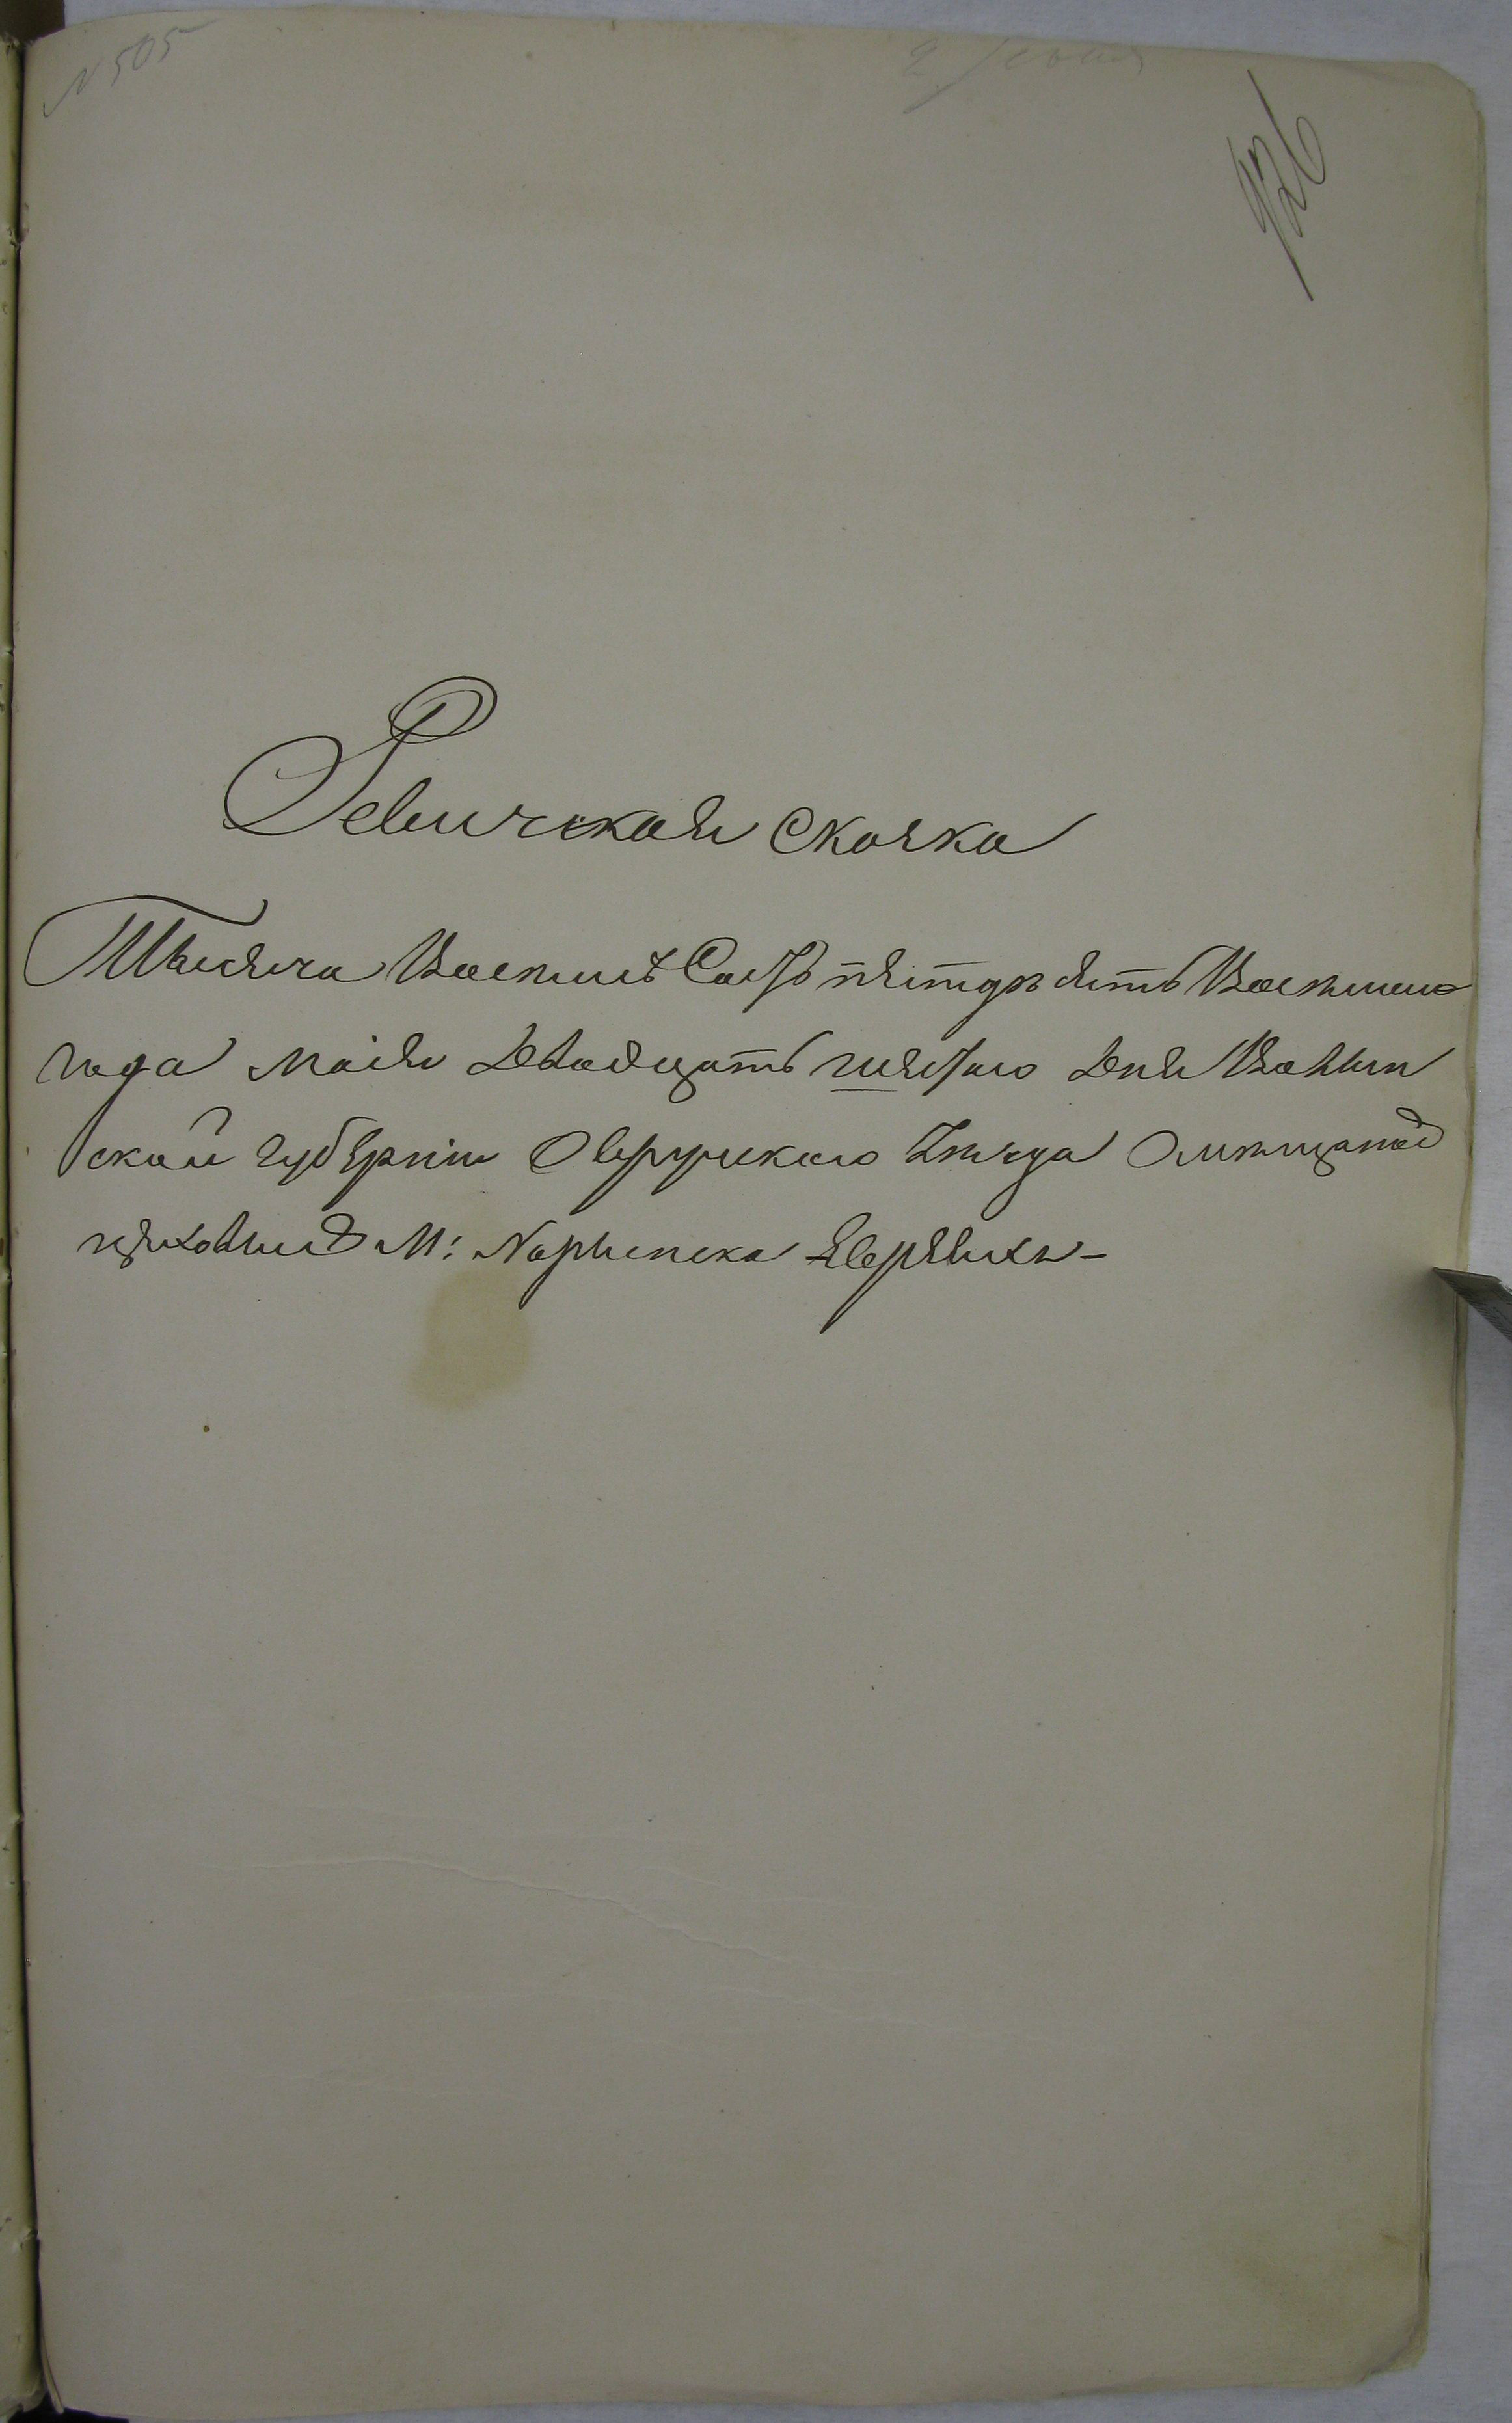 N 505
426
Ревизская скаска
Тысяча Восемсотъ пятдесятъ Восмаго
года маія двадцать шестаго дня Волын
ской губерніи Овруцкаго уезда О мещанах
цеховыхъ М: Норинска Евреихъ-